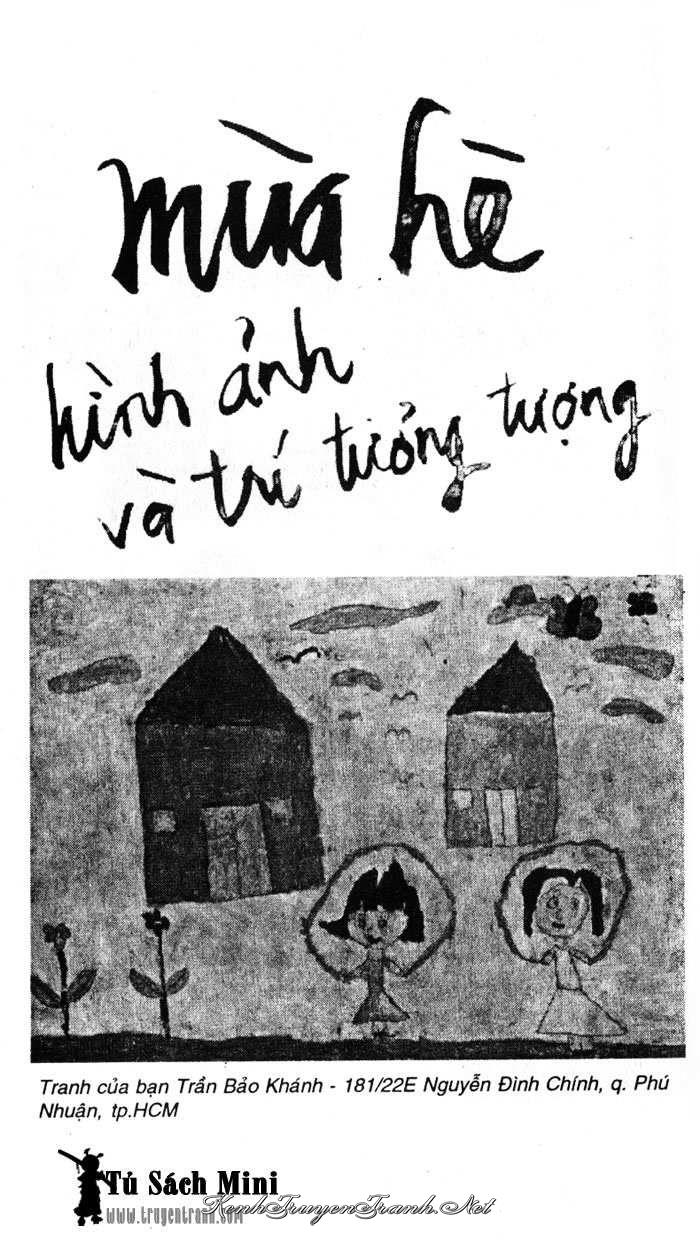 mùa hè
hình ảnh
và trí tưởng tượng
Tranh của bạn Trần Bảo Khánh - 181/22E Nguyễn Đình Chính, q. Phú
Nhuận, tp.HCM
Tủ Sách Mini
KenhTruyenTranh.Net
www.truyentranh.com